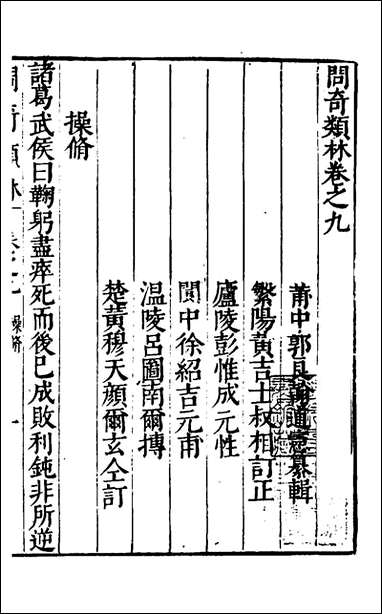 問奇類林卷之九
莆中郭良翰道憲纂輯
繁陽黃吉士叔相訂正
廬陵彭惟成元性
閩中徐紹吉元甫
溫陵呂圖南爾摶
楚黃穆天顏爾玄仝訂
操脩
諸葛武侯曰鞠躬盡瘁死而後已成敗利鈍非所逆
問奇類林 卷之九 操脩 一